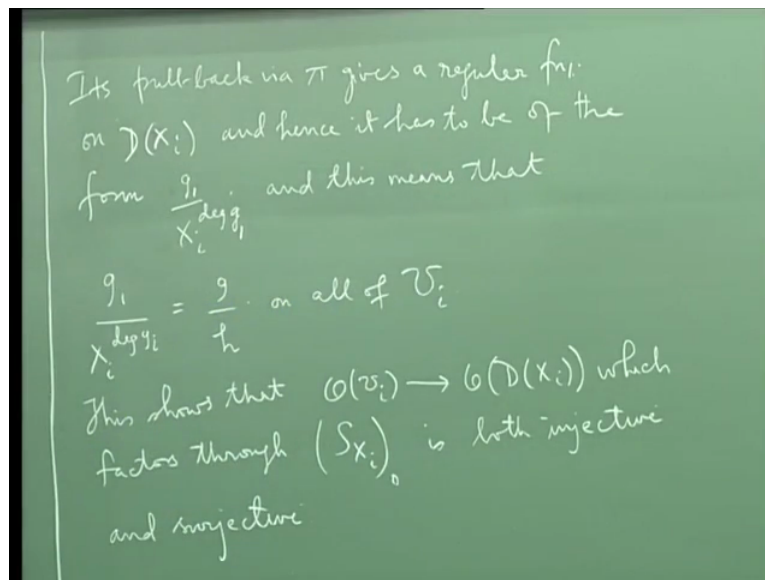 Its pull-back via π gives a regular fn.
on D(X_i) and hence it has to be of the
form g_1/X_i^{deg g_1} and this means that
g_1/X_i^{deg g_i} = g/h on all of U_i
This shows that O(U_i) → O(D(X_i)) which
factors through (S_{X_i})_0 is both injective
and surjective